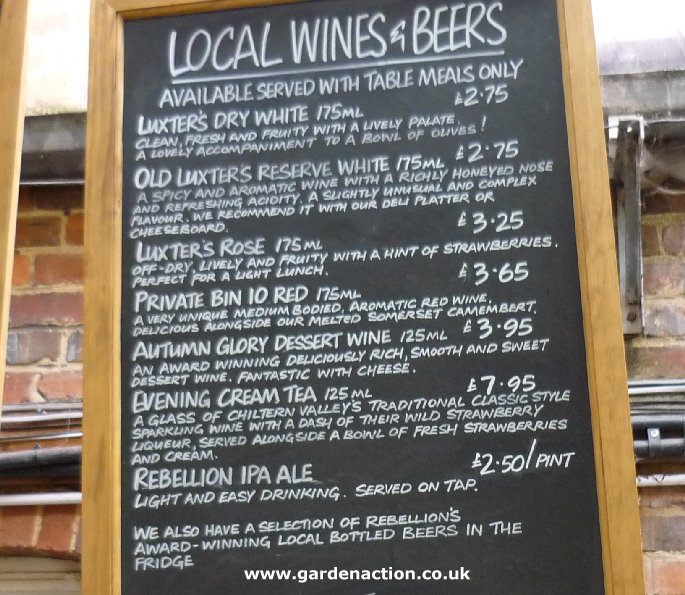 LOCAL WINES & BEERS
AVAILABLE SERVED WITH TABLE MEALS ONLY
LUXTER'S DRY WHITE 175ML £2.75
CLEAN, FRESH AND FRUITY WITH A LIVELY PALATE.
A LOVELY ACCOMPANIMENT TO A BOWL OF OLIVES!
OLD LUXTERS RESERVE WHITE 175ML £2.75
A SPICY AND AROMATIC WINE WITH A RICHLY HONEYED NOSE
AND REFRESHING ACIDITY. A SLIGHTLY UNUSUAL AND COMPLEX
FLAVOUR. WE RECOMMEND IT WITH OUR DELI PLATTER OR
CHEESEBOARD.
LUXTER'S ROSE 175ML £3.25
OFF-DRY, LIVELY AND FRUITY WITH A HINT OF STRAWBERRIES.
PERFECT FOR A LIGHT LUNCH.
PRIVATE BIN 10 RED 175ML £3.65
A VERY UNIQUE MEDIUM BODIED, AROMATIC RED WINE,
DELICIOUS ALONGSIDE OUR MELTED SOMERSET CAMEMBERT.
AUTUMN GLORY DESSERT WINE 125ML £3.95
AN AWARD WINNING DELICIOUSLY RICH, SMOOTH AND SWEET
DESSERT WINE. FANTASTIC WITH CHEESE.
EVENING CREAM TEA 125ML £7.95
A GLASS OF CHILTERN VALLEY'S TRADITIONAL CLASSIC STYLE
SPARKLING WINE WITH A DASH OF THEIR WILD STRAWBERRY
LIQUEUR, SERVED ALONGSIDE A BOWL OF FRESH STRAWBERRIES
AND CREAM.
REBELLION IPA ALE £2.50/PINT
LIGHT AND EASY DRINKING. SERVED ON TAP.
WE ALSO HAVE A SELECTION OF REBELLION'S
AWARD-WINNING LOCAL BOTTLED BEERS IN THE
FRIDGE
www.gardenaction.co.uk